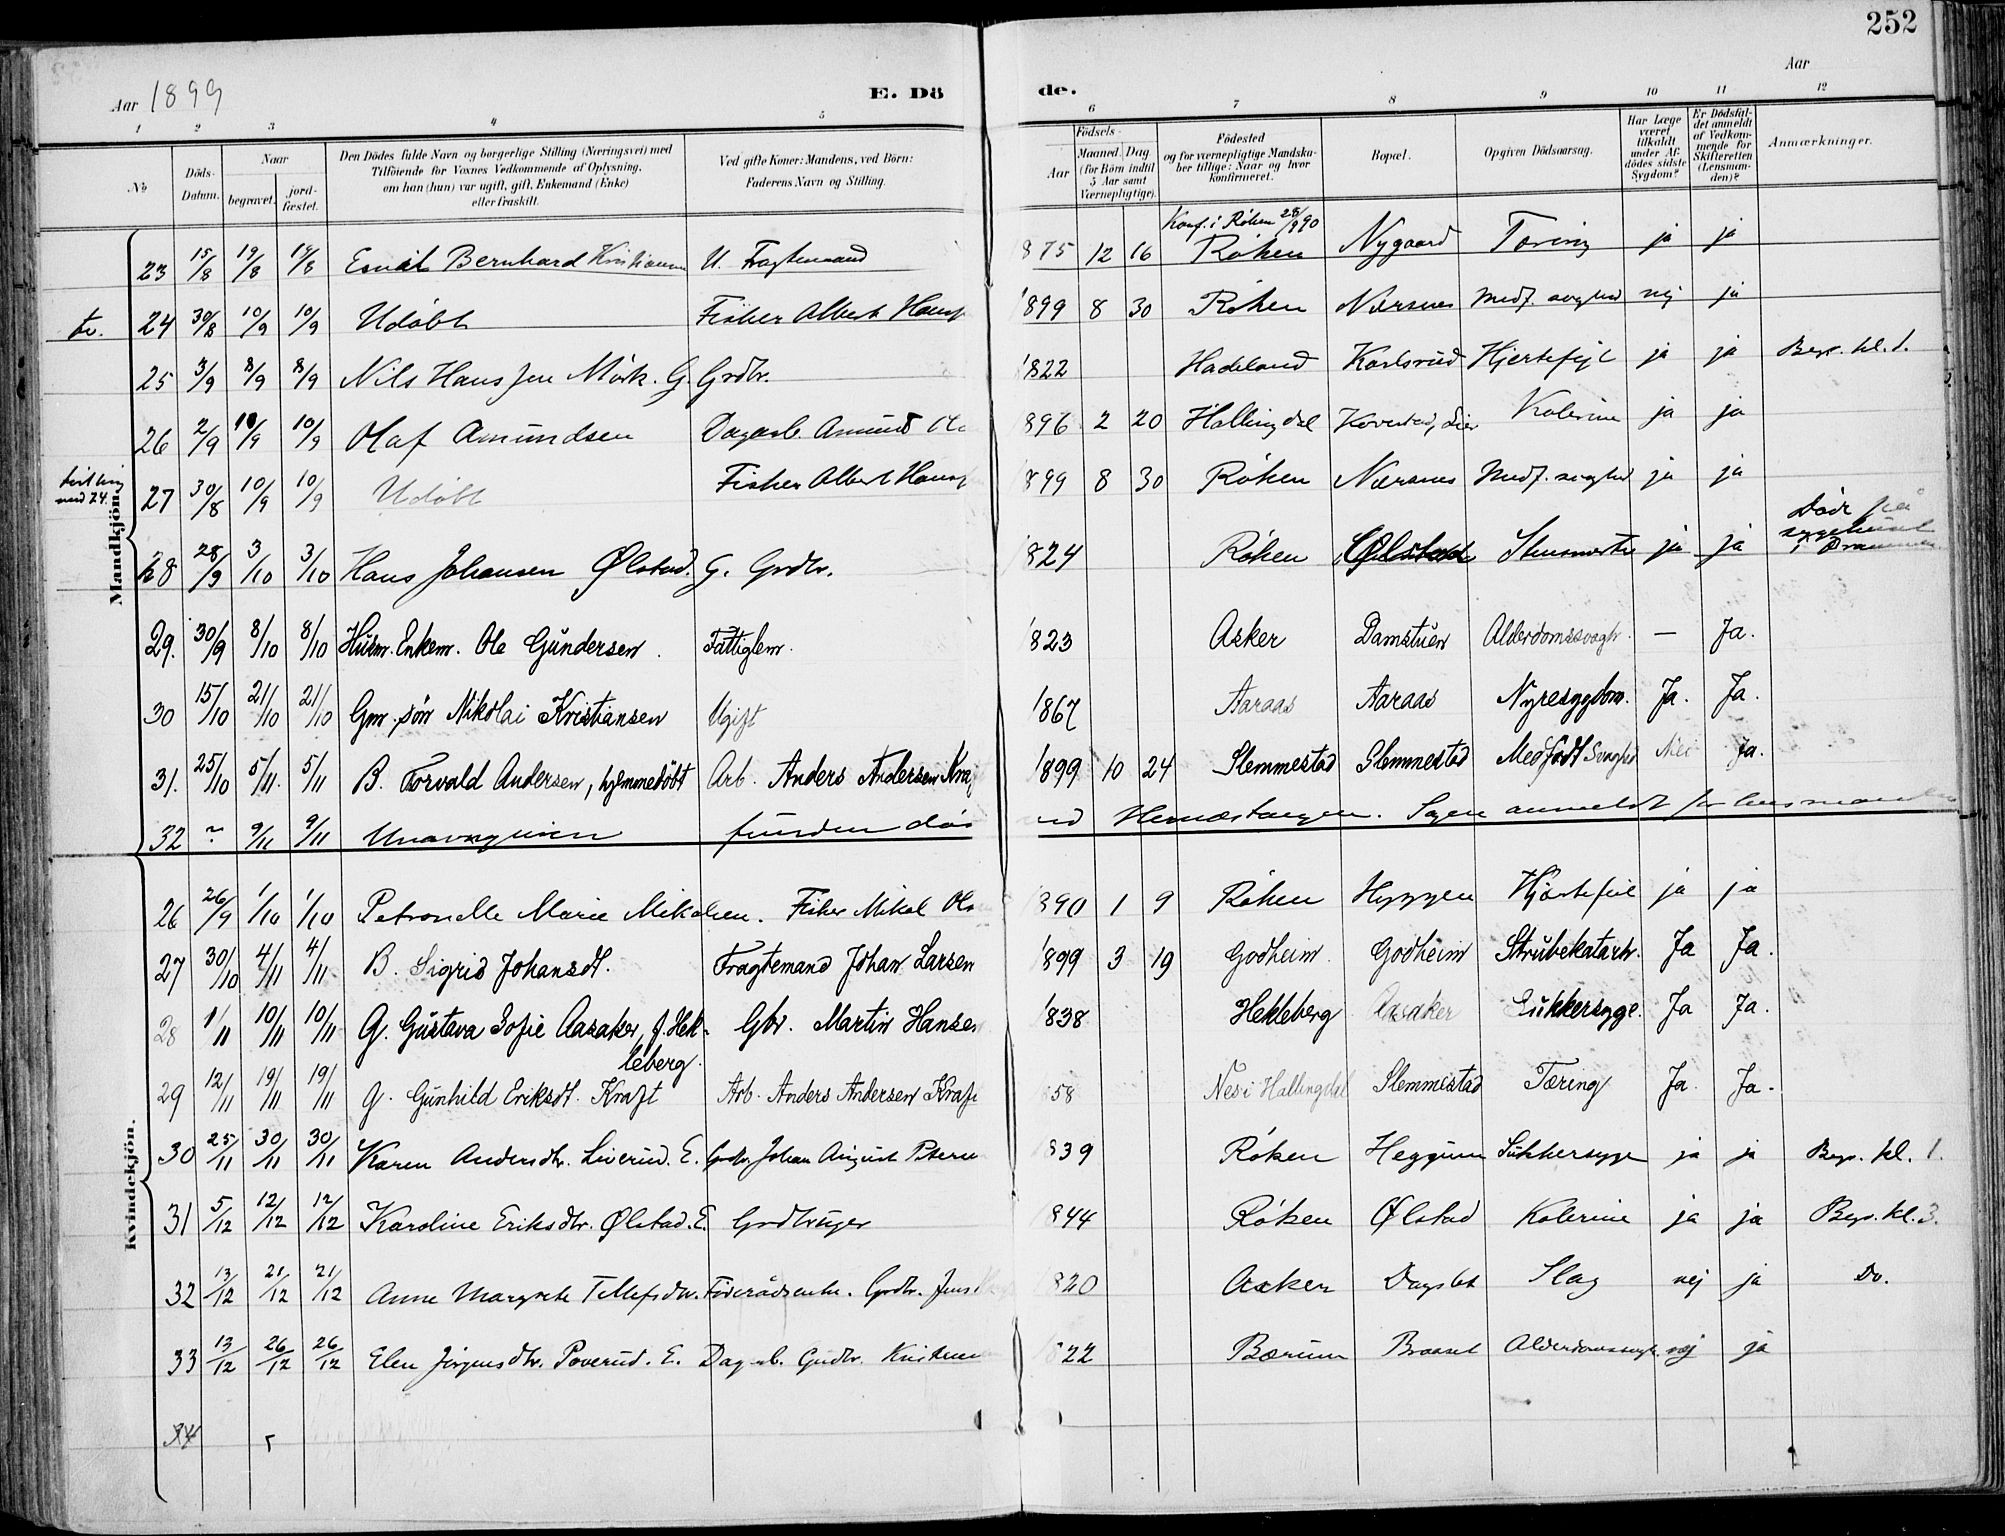 252
Aar 1899
E. Dö
de.
Aar
1 2 3 4 5 6 7 8 9 10 11 12
No
Döds-Datum.
Naar
begravet.
jord-fæstet.
Den Dödes fulde Navn og borgerlige Stilling (Næringsvei) med
Tilföiende for Voxnes Vedkommende af Oplysning,
om han (hun) var ugift, gift, Enkemand (Enke)
eller fraskilt.
Ved gifte Koner: Mandens, ved Börn:
Faderens Navn og Stilling.
Födsels-
Aar
Maaned. Dag
(for Börn indtil
5 Aar samt
Værnepligtige).
Födested
og for værnepligtige Mandska-
ber tillige: Naar og hvor
konfirmeret.
Bopæl.
Opgiven Dödsaarsag.
Har Læge
været
tilkaldt
under Af-
dödes sidste
Sygdom?
Er Dödsfal-
det anmeldt
af Vedkom-
mende for
Skifteretten
(Lensman-
den)?
Anmærkninger.
Mandkjön.
Konf. i Røken 28/9 90
23 15/8 19/8 19/8 Emil Bernhard Kristiansen U. Fragtemand 875 12 16 Røken Nygaard Tæring ja ja
tv. 24 30/8 10/9 10/9 Udøbt Fisker Albert Hans 1899 8 30 Røken Nærsnes Medf. svaghed nej ja
25 3/9 8/9 8/9 Nils Hansen Mørk. G. Grdbr. 1822 Hadeland Karlsrud Hjertefejl ja ja Begr. kl. 1.
26 2/9 10/9 10/9 Olaf Amundsen Dagarb. Amund 896 2 20 Hallingdal Lier Kolerine ja ja
tvilling med 24. 27 30/8 10/9 10/9 Udøbt Fisker Albert Hans 899 8 30 Røken Nærsnes Medf. svaghed ja ja
28 28/9 3/10 3/10 Hans Johansen Ølstad. G. Grdbr. 1824 Røken Ølstad ja ja Død på sygehuset i Drammen
29. 30/9 8/10 8/10 Husm. Enkem. Ole Gundersen. Fattiglem. 1823 Asker Damstuen Alderdomssvagh. — Ja.
30 15/10 21/10 21/10 Gm. søn Nikolai Kristiansen Ugift 1867 Aaraas Aaraas Nyresygdom. Ja. Ja.
31. 25/10 5/11. 5/11 B. Torvald Andersen, hjemmedöbt Arb. Anders Andersen Kraf 1899 10 24 Slemmestad Slemmestad Medfödt Svaghed Nei Ja.
32 ? 9/11 9/11 funden død ved Hernæstangen. Sagen anmeldt for lensmanden
Kvindekjön.
26 26/9 1/10 1/10 Petronelle Marie Mikalsen. Fisker Mikal Ols 1890 1 9 Røken Hyggen Hjertefeil ja ja
27 30/10 4/11 4/11 B. Sigrid Johansdt. Fragtemand Johan Larsen 1899 3 19 Godheim Godheim Strubekatarh. Ja Ja.
28 1/11 10/11 10/11 G. Gustava Sofie Aasaker, f. Hek-
leberg. Gbr. Martin Hansen 1838 Hekleberg Aasaker Sukkersyge. Ja Ja.
29 12/11 19/11 19/11 G. Gunhild Eriksdt. Kraft Arb. Anders Andersen Kraf 858 Nes i Hallingdal Slemmestad Tæring Ja. Ja.
30 25/11 30/11 30/11 Karen Andersdtr. Liverud. E. Grdbr. Johan August Peterse 839 Røken Heggum Sukkersyge ja ja Begr. kl. 1.
31 5/12 12/12 12/12 Karoline Eriksdtr. Ølstad. E. Grdbruger 844 Røken Ølstad Kolerine ja ja Begr. kl. 3.
32 13/12 21/12 21/12 Anne Margrete Tollefsdtr. Føderådsenke. Grdbr. Jens 820 Asker Dagslet Slag nej ja Do.
33 13/12 26/12 26/12 Elen Jörgensdtr. Poverud. E. Dagarb. Gudbr. Kristense 822 Bærum Braaset nej ja
34